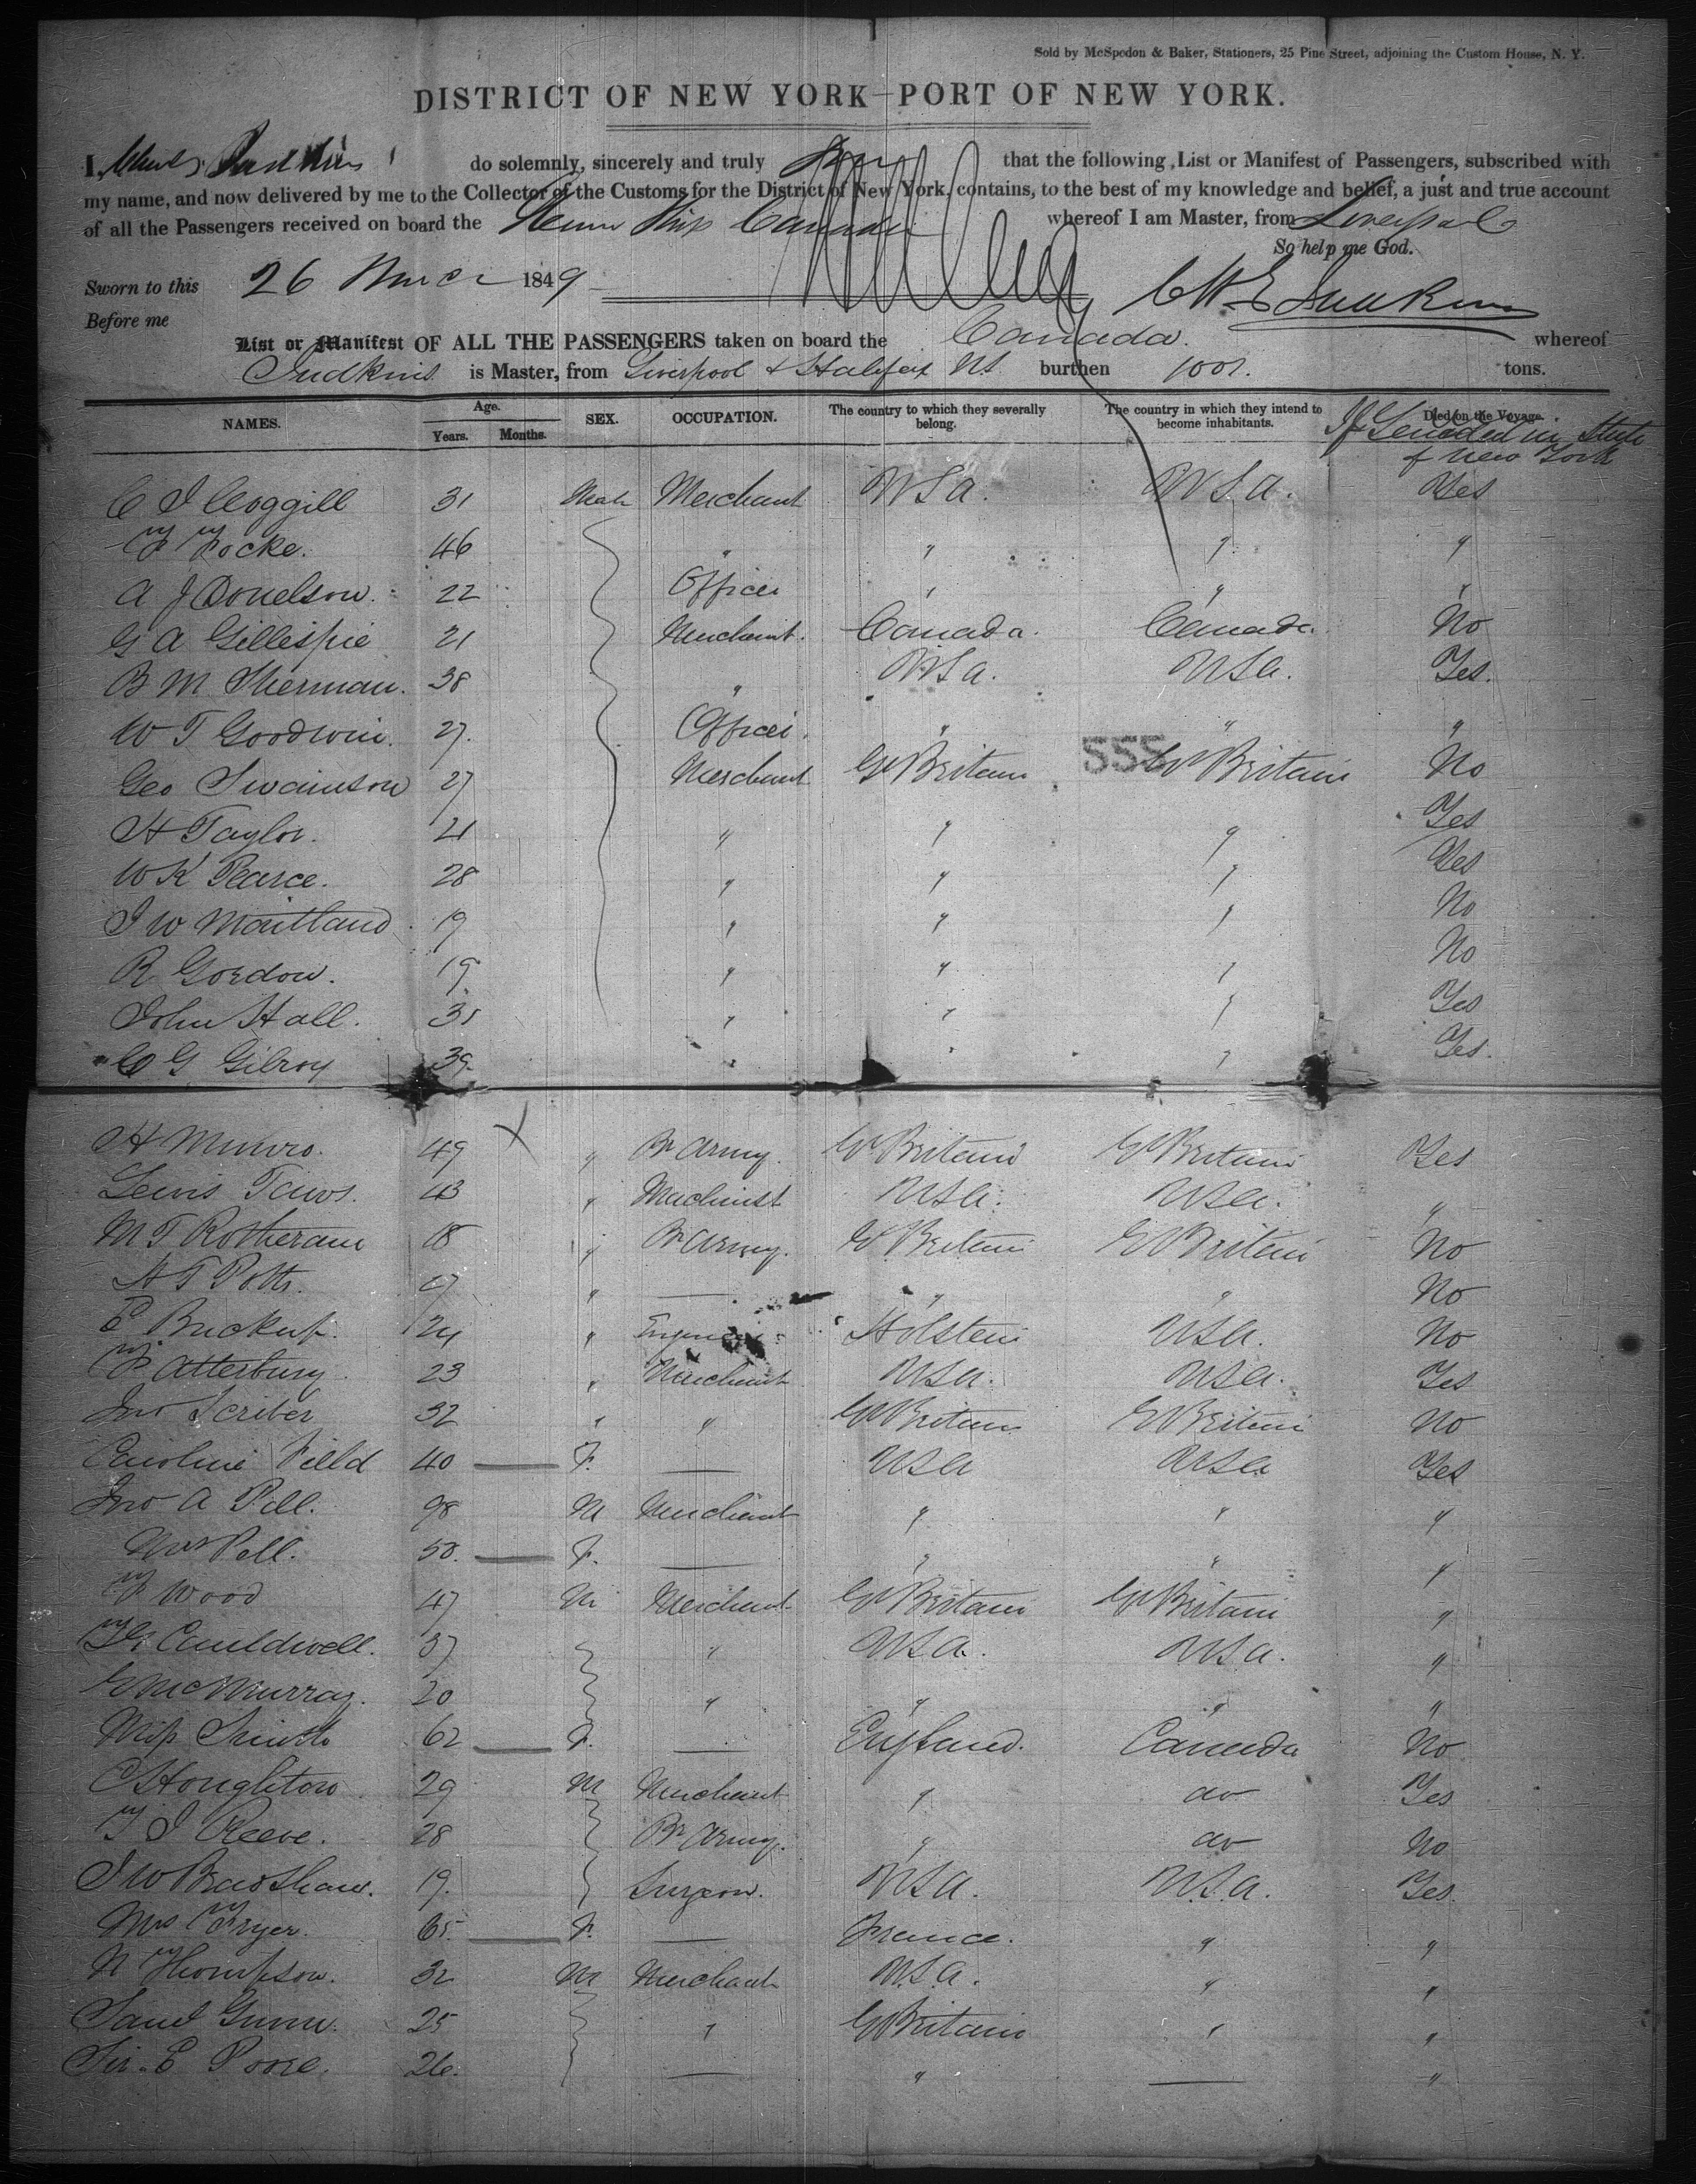 Sold by McSpedon & Baker, Stationers, 25 Pine Street, adjoining the Custom House, N. Y.
DISTRICT OF NEW YORK—PORT OF NEW YORK.
I, Judkins do solemnly, sincerely and truly that the following List or Manifest of Passengers, subscribed with
my name, and now delivered by me to the Collector of the Customs for the District of New York, contains, to the best of my knowledge and belief, a just and true account
of all the Passengers received on board the Steam Ship Canada whereof I am Master, from Liverpool
So help me God.
Sworn to this 26 1849 Judkins
Before me
List or Manifest OF ALL THE PASSENGERS taken on board the Canada. whereof
Judkins is Master, from Liverpool & Halifax NS burthen 1001. tons.
NAMES. Age. Years. Months. SEX. OCCUPATION. The country to which they severally belong. The country in which they intend to become inhabitants. Died on the Voyage.
If Landed in State
of New York
C J Coggill 31 Male Merchant USA. USA. Yes
F Focke. 46 " " " "
A J Donelson. 22 Officer " " "
G A Gillespie 21 Merchant. Canada. Canada. No
B M Sherman. 38 " USA. USA. Yes.
W T Goodwin. 27. Officer. " " "
555
Geo Swainson 27 Merchant Gt Britain Gt Britain No
H Taylor. 21 " " " Yes
W K Pearce. 28 " " " Yes
J W Maitland 19 " " " No
R Gordon. 19. " " " No
John Hall. 35 " " " Yes
C G Gilroy 39. " " " Yes.
H Munro. 49 " Br Army. Gt Britain Gt Britain Yes
Lewis Taws. 43 " Machinist USA. USA. "
M T Rotheram 18 " Br Army. Gt Britain Gt Britain No
H T Potts. " — " " No
E Buckup. 24 " Engineer Holstein USA. No
F Atterbury. 23 " Merchant USA. USA. Yes
Jno Scriber 32 " " Gt Britain Gt Britain No
Caroline Field 40 — F. — USA USA Yes
Jno A Pell. M Merchant " " "
Mrs Pell. 50. — F. — " " "
F Wood 47 M Merchant Gt Britain Gt Britain "
Cauldwell. 37 " USA. USA. "
G McMurray. 20 " " " "
Miss Smith 62 — F. — England. Canada No
C Houghton 29 M Merchant " do Yes
T J Reeve. 28 Br Army. " do No
J W Bradshaw. 19. Surgeon. USA. USA. Yes.
Mrs Fryer. 65. — F. — France. " "
N Thompson. 32 M Merchant USA. " "
Saml Gunn. 25 " Gt Britain " "
Sir E Poore. 26. — " — "